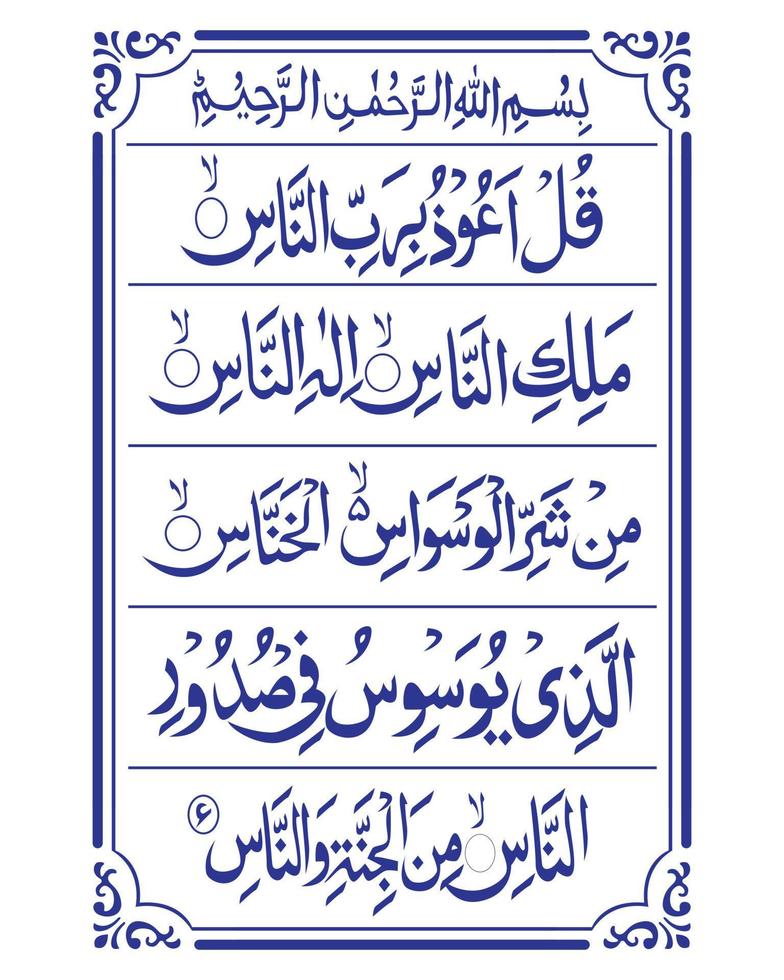 بِسْمِ اللّٰهِ الرَّحْمٰنِ الرَّحِيْمِ
قُلْ اَعُوْذُ بِرَبِّ النَّاسِ ۙ○
مَلِكِ النَّاسِ ۙ○ اِلٰهِ النَّاسِ ۙ○
مِنْ شَرِّ الْوَسْوَاسِ ۙ۵ الْخَنَّاسِ ۙ○
الَّذِیْ یُوَسْوِسُ فِیْ صُدُوْرِ
النَّاسِ ۙ○ مِنَ الْجِنَّةِ وَالنَّاسِ ۶